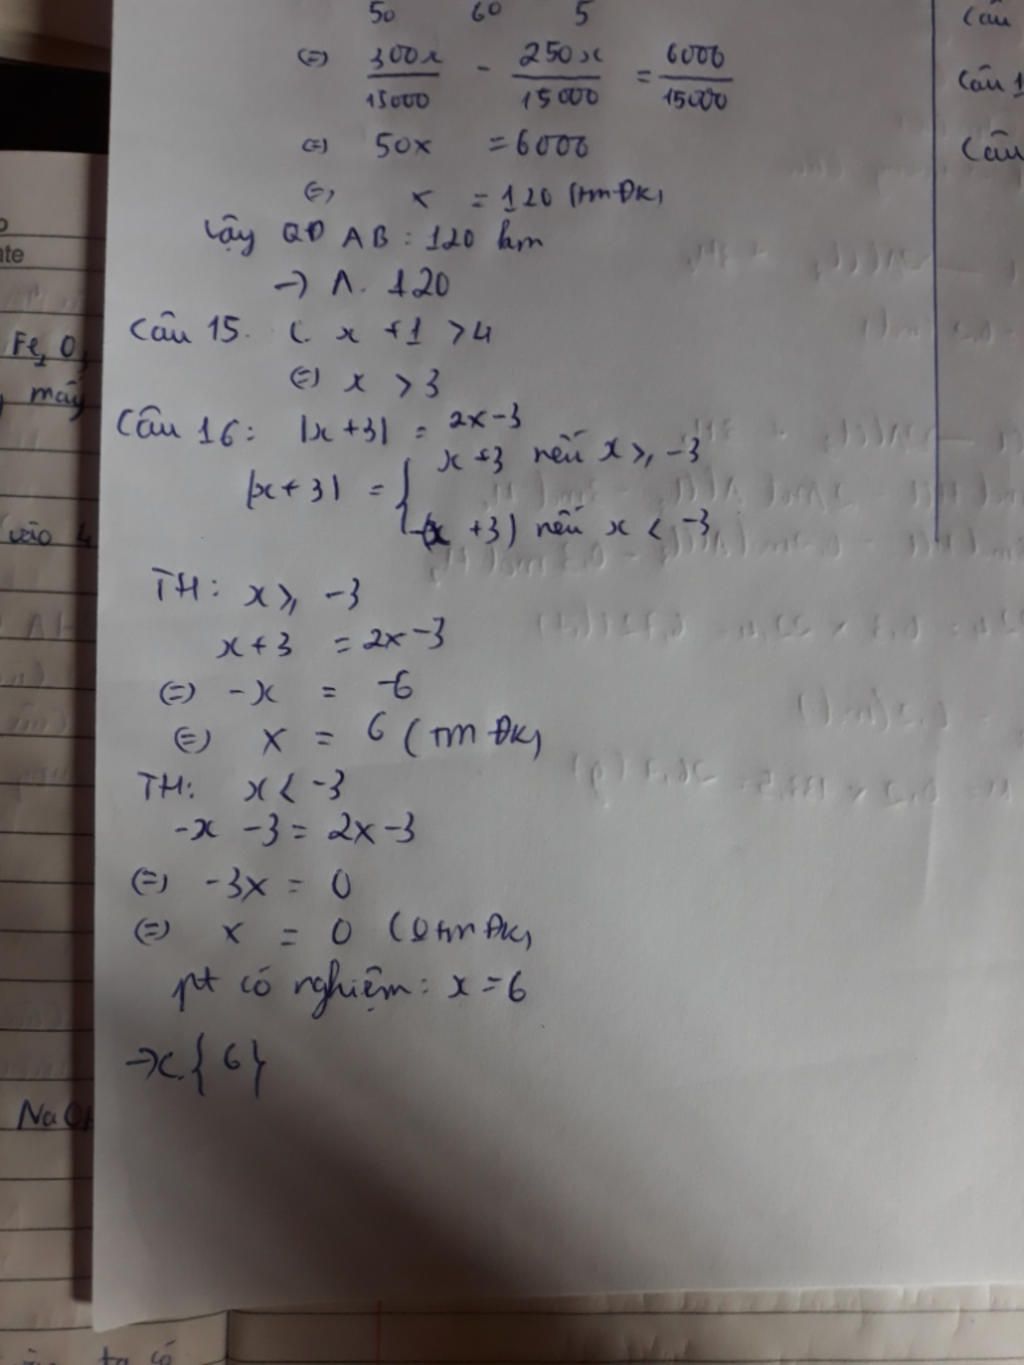 50 60 5
(=) 300x/15000 - 250x/15000 = 6000/15000
(=) 50x = 6000
(=) x = 120 (tm ĐK)
Vậy QĐ AB : 120 km
→ A. 120
Câu 15. C. x + 1 > 4
(=) x > 3
Câu 16: |x + 3| = 2x - 3
|x + 3| = { x + 3 nếu x ≥ -3
-(x + 3) nếu x < -3
TH: x ≥ -3
x + 3 = 2x - 3
(=) -x = -6
(=) x = 6 (TM ĐK)
TH: x < -3
-x - 3 = 2x - 3
(=) -3x = 0
(=) x = 0 (0 tm ĐK)
pt có nghiệm: x = 6
→ C. {6}
Câu
Câu 1
Câu
ate
Fe2 O
máy
vào 4
NaOH
ta có